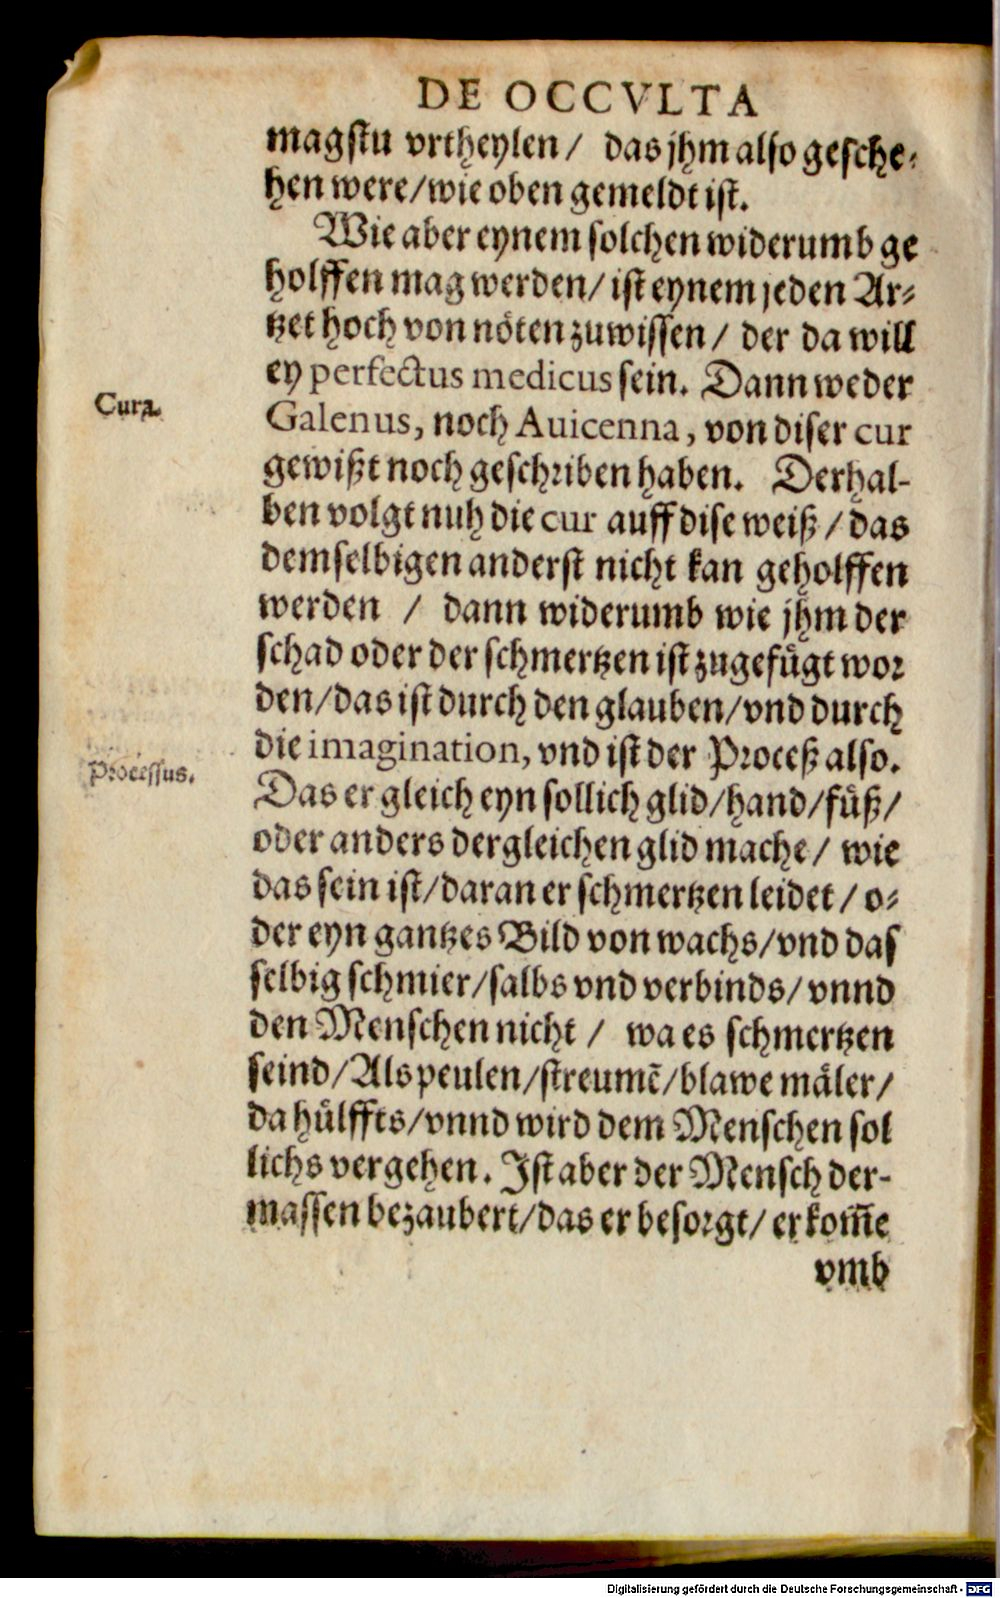 DE OCCVLTA
magstu vrtheylen / das jhm also gesche-
hen were/wie oben gemeldt ist.
Wie aber eynem solchen widerumb ge
holffen mag werden/ ist eynem jeden Ar-
tzet hoch von nöten zuwissen / der da will
ey perfectus medicus sein. Dann weder
Cura.
Galenus, noch Auicenna, von diser cur
gewißt noch geschriben haben. Derhal-
ben volgt nuh die cur auff dise weiß / das
demselbigen anderst nicht kan geholffen
werden / dann widerumb wie jhm der
schad oder der schmertzen ist zugefügt wor
den/das ist durch den glauben/vnd durch
die imagination, vnd ist der Proceß also.
Processus.
Das er gleich eyn sollich glid/hand/füß/
oder anders dergleichen glid mache / wie
das sein ist/daran er schmertzen leidet / o-
der eyn gantzes Bild von wachs/vnd das
selbig schmier/salbs vnd verbinds/ vnnd
den Menschen nicht / wa es schmertzen
seind/Als peulen/streumē/blawe mäler/
da hülffts/vnnd wird dem Menschen sol
lichs vergehen. Ist aber der Mensch der-
massen bezaubert/das er besorgt/ er kom̄e
vmb
Digitalisierung gefördert durch die Deutsche Forschungsgemeinschaft - DFG